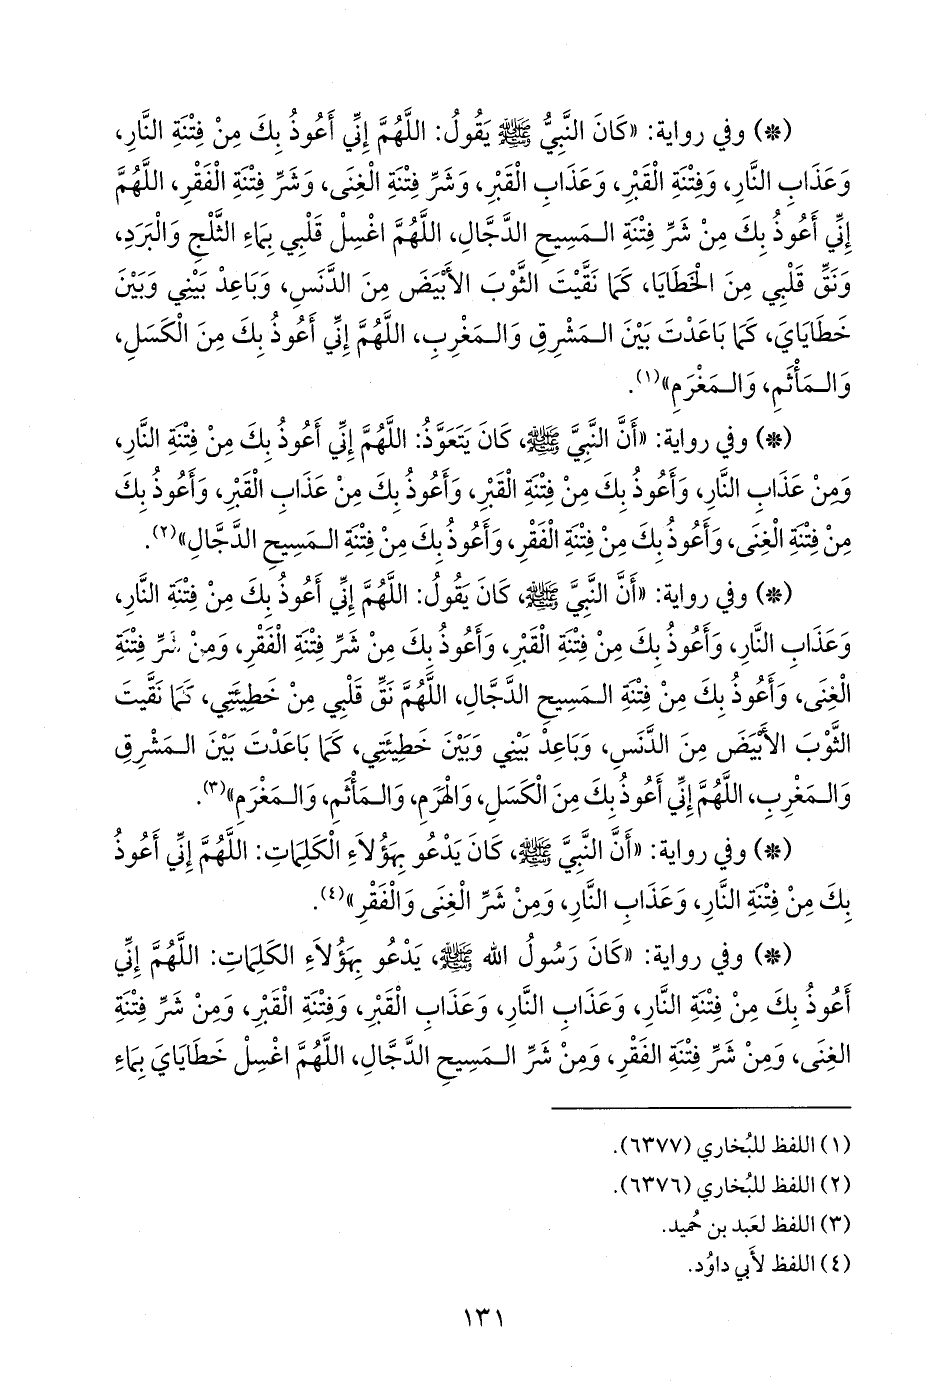 (*) وفي رواية: «كَانَ النَّبِيُّ ﷺ يَقُولُ: اللَّهُمَّ إِنِّي أَعُوذُ بِكَ مِنْ فِتْنَةِ النَّارِ،
وَعَذَابِ النَّارِ، وَفِتْنَةِ الْقَبْرِ، وَعَذَابِ الْقَبْرِ، وَشَرِّ فِتْنَةِ الْغِنَى، وَشَرِّ فِتْنَةِ الْفَقْرِ، اللَّهُمَّ
إِنِّي أَعُوذُ بِكَ مِنْ شَرِّ فِتْنَةِ الْـمَسِيحِ الدَّجَّالِ، اللَّهُمَّ اغْسِلْ قَلْبِي بِمَاءِ الثَّلْجِ وَالْبَرَدِ،
وَنَقِّ قَلْبِي مِنَ الْخَطَايَا، كَمَا نَقَّيْتَ الثَّوْبَ الأَبْيَضَ مِنَ الدَّنَسِ، وَبَاعِدْ بَيْنِي وَبَيْنَ
خَطَايَايَ، كَمَا بَاعَدْتَ بَيْنَ الْـمَشْرِقِ وَالْـمَغْرِبِ، اللَّهُمَّ إِنِّي أَعُوذُ بِكَ مِنَ الْكَسَلِ،
وَالْـمَأْثَمِ، وَالْـمَغْرَمِ»(١).
(*) وفي رواية: «أَنَّ النَّبِيَّ ﷺ، كَانَ يَتَعَوَّذُ: اللَّهُمَّ إِنِّي أَعُوذُ بِكَ مِنْ فِتْنَةِ النَّارِ،
وَمِنْ عَذَابِ النَّارِ، وَأَعُوذُ بِكَ مِنْ فِتْنَةِ الْقَبْرِ، وَأَعُوذُ بِكَ مِنْ عَذَابِ الْقَبْرِ، وَأَعُوذُ بِكَ
مِنْ فِتْنَةِ الْغِنَى، وَأَعُوذُ بِكَ مِنْ فِتْنَةِ الْفَقْرِ، وَأَعُوذُ بِكَ مِنْ فِتْنَةِ الْـمَسِيحِ الدَّجَّالِ»(٢).
(*) وفي رواية: «أَنَّ النَّبِيَّ ﷺ، كَانَ يَقُولُ: اللَّهُمَّ إِنِّي أَعُوذُ بِكَ مِنْ فِتْنَةِ النَّارِ،
وَعَذَابِ النَّارِ، وَأَعُوذُ بِكَ مِنْ فِتْنَةِ الْقَبْرِ، وَأَعُوذُ بِكَ مِنْ شَرِّ فِتْنَةِ الْفَقْرِ، وَمِنْ شَرِّ فِتْنَةِ
الْغِنَى، وَأَعُوذُ بِكَ مِنْ فِتْنَةِ الْـمَسِيحِ الدَّجَّالِ، اللَّهُمَّ نَقِّ قَلْبِي مِنْ خَطِيئَتِي، كَمَا نَقَّيْتَ
الثَّوْبَ الأَبْيَضَ مِنَ الدَّنَسِ، وَبَاعِدْ بَيْنِي وَبَيْنَ خَطِيئَتِي، كَمَا بَاعَدْتَ بَيْنَ الْـمَشْرِقِ
وَالْـمَغْرِبِ، اللَّهُمَّ إِنِّي أَعُوذُ بِكَ مِنَ الْكَسَلِ، وَالْهَرَمِ، وَالْـمَأْثَمِ، وَالْـمَغْرَمِ»(٣).
(*) وفي رواية: «أَنَّ النَّبِيَّ ﷺ، كَانَ يَدْعُو بِهَؤُلاَءِ الْكَلِمَاتِ: اللَّهُمَّ إِنِّي أَعُوذُ
بِكَ مِنْ فِتْنَةِ النَّارِ، وَعَذَابِ النَّارِ، وَمِنْ شَرِّ الْغِنَى وَالْفَقْرِ»(٤).
(*) وفي رواية: «كَانَ رَسُولُ الله ﷺ، يَدْعُو بِهَؤُلاَءِ الكَلِمَاتِ: اللَّهُمَّ إِنِّي
أَعُوذُ بِكَ مِنْ فِتْنَةِ النَّارِ، وَعَذَابِ النَّارِ، وَعَذَابِ الْقَبْرِ، وَفِتْنَةِ الْقَبْرِ، وَمِنْ شَرِّ فِتْنَةِ
الغِنَى، وَمِنْ شَرِّ فِتْنَةِ الفَقْرِ، وَمِنْ شَرِّ الْـمَسِيحِ الدَّجَّالِ، اللَّهُمَّ اغْسِلْ خَطَايَايَ بِمَاءِ
(١) اللفظ للبُخاري (٦٣٧٧).
(٢) اللفظ للبُخاري (٦٣٧٦).
(٣) اللفظ لعَبد بن حُميد.
(٤) اللفظ لأَبي داوُد.
١٣١